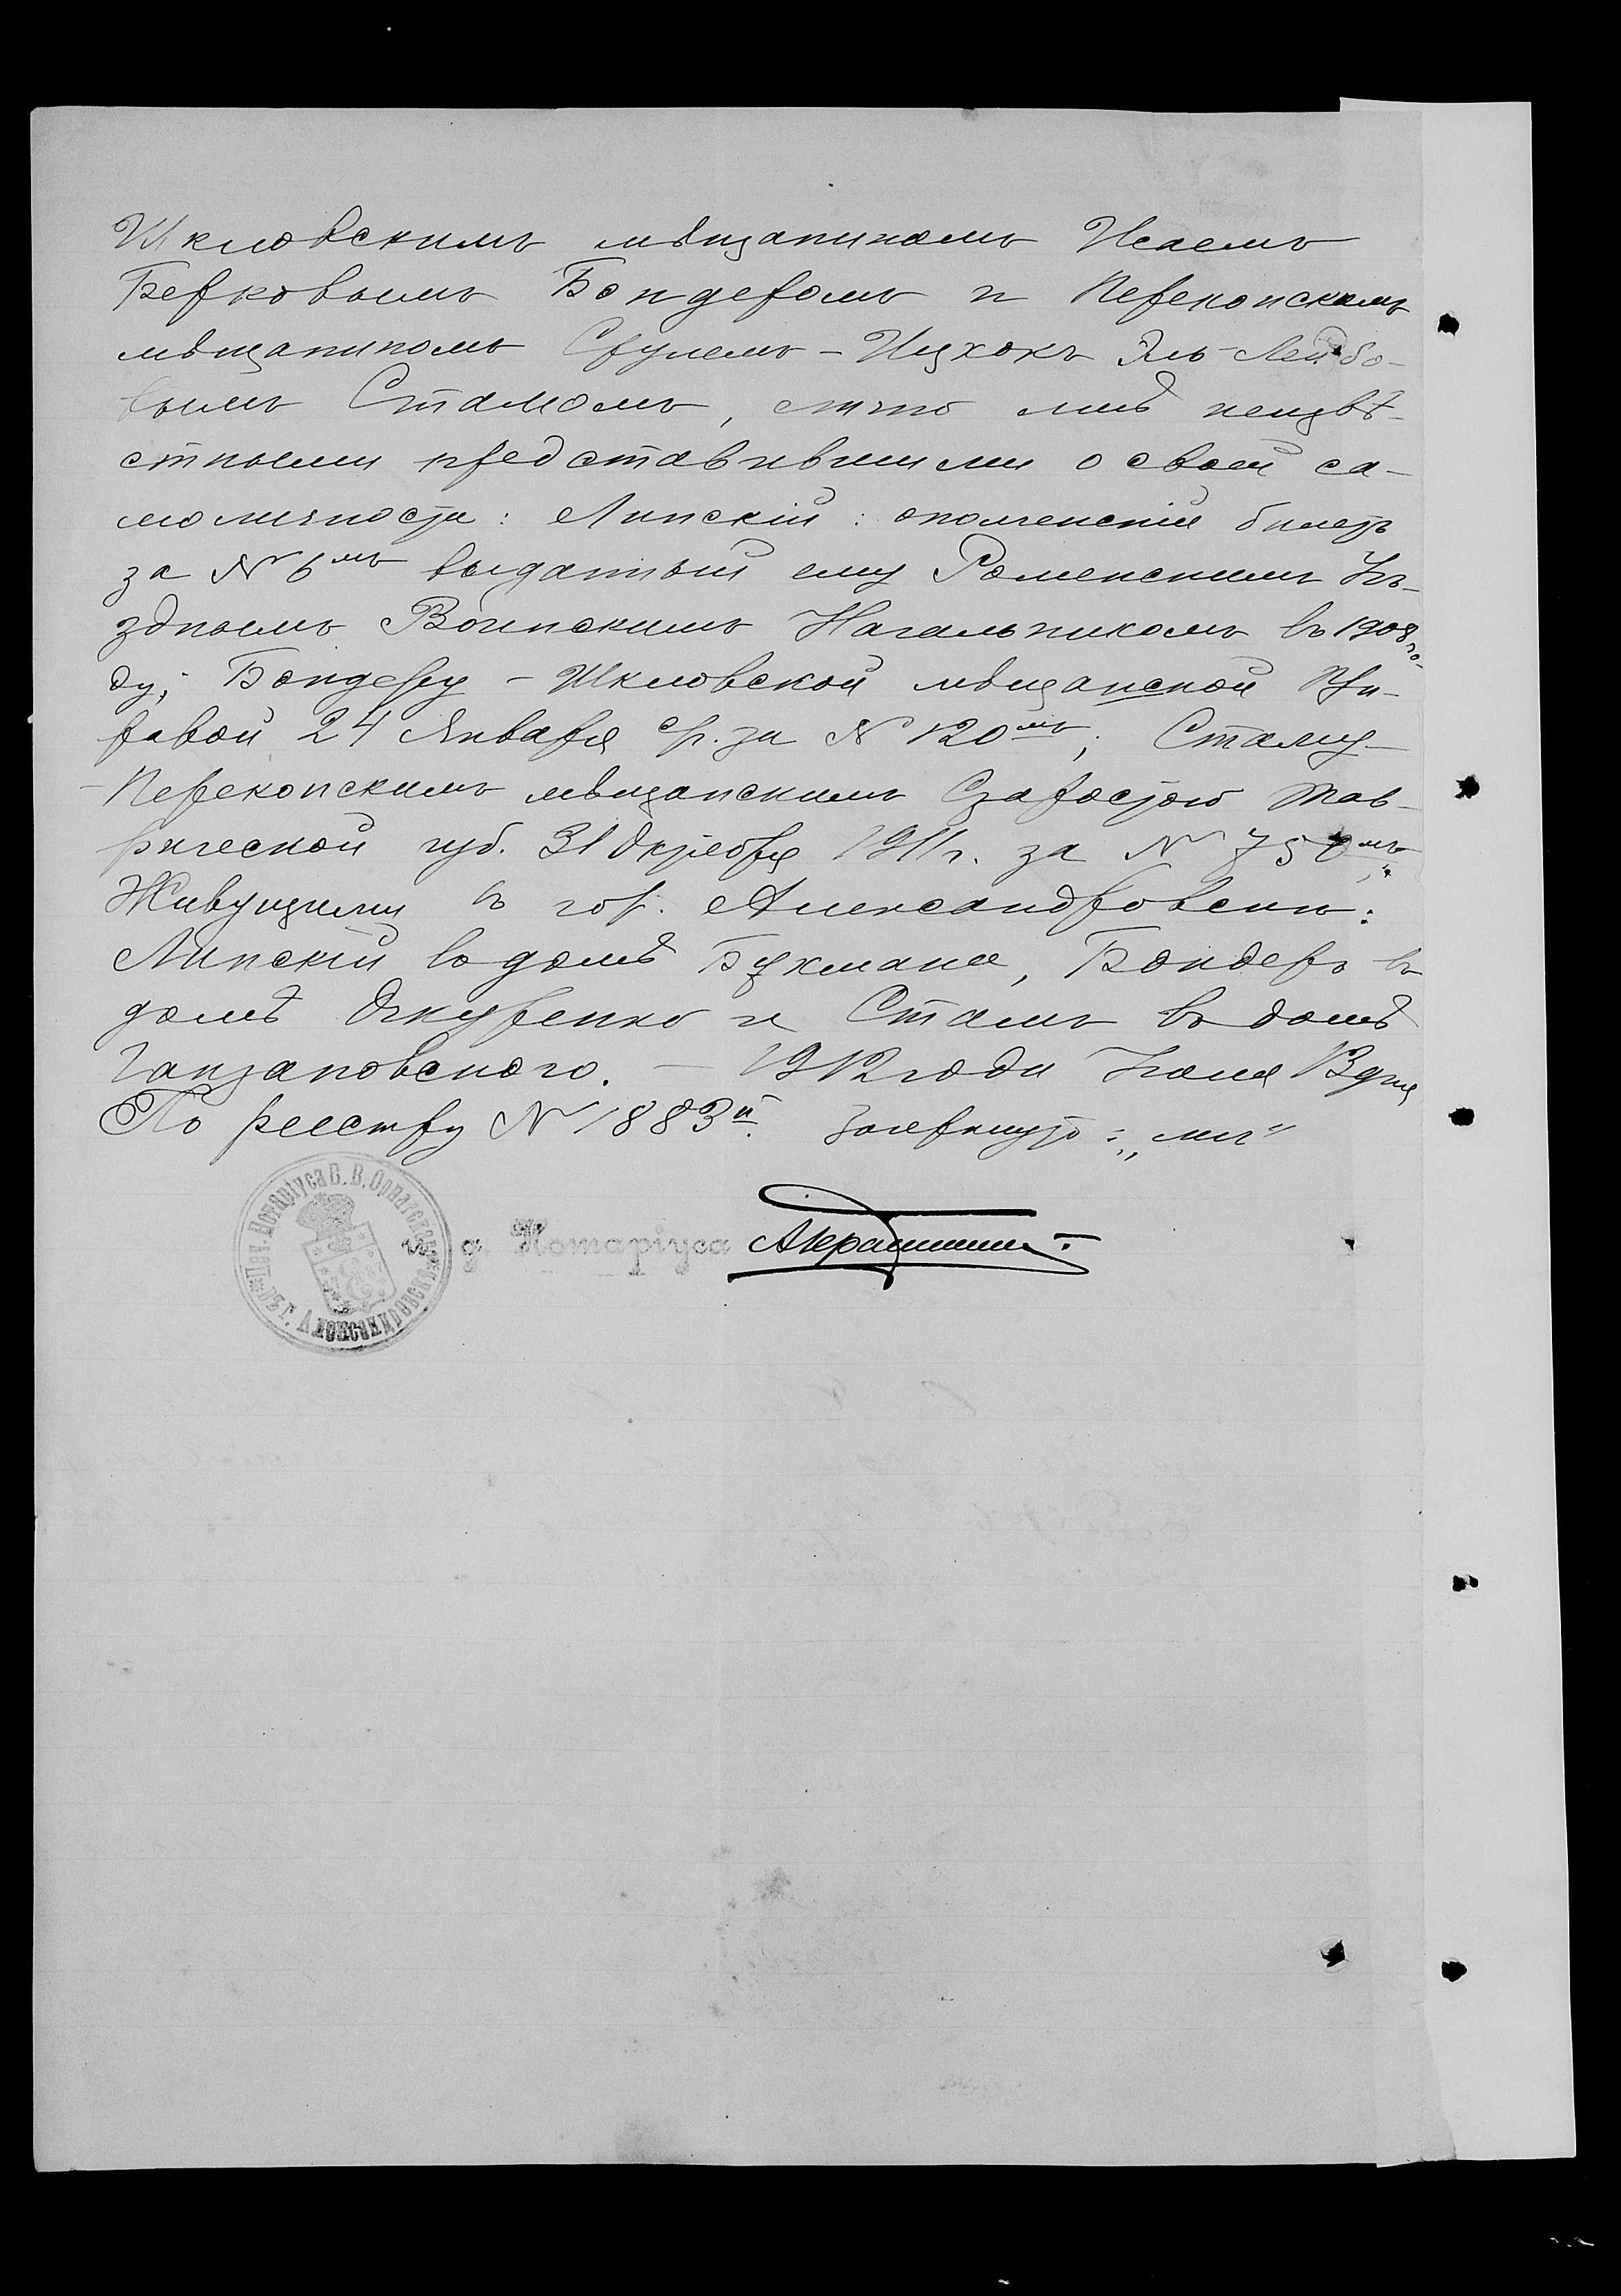 Шкловскимъ мѣщаниномъ Исаемъ
Берковымъ Бондеромъ и Перекопскимъ
мѣщаниномъ Срулемъ-Ицхокъ Эль-Лейбо-
вымъ Стамомъ, лично мнѣ неизвѣ-
стными представившими о своей са-
моличности: Липскій: ополченскій билетъ
за № 6мъ выданный ему Роменскимъ Уѣ-
зднымъ Воинскимъ Начальникомъ въ 1908 го-
ду; Бондеру - Шкловской мѣщанской Уп-
равой 24 Января с/г. за № 120мъ; Стаму-
- Перекопскимъ мѣщанскимъ Старостою Тав-
рической губ. 31 Октября 1911 г. за № мъ;
Живущими въ гор. Александровскѣ:
Липскій въ домѣ Бухмана, Бондеръ въ
домѣ и Стамъ въ домѣ
. — 1912 года дня
По реестру № 1883й. Зачеркнуто: „ми"
и. д. Нотаріуса
Печ. Нотаріуса въ г. Александровскѣ